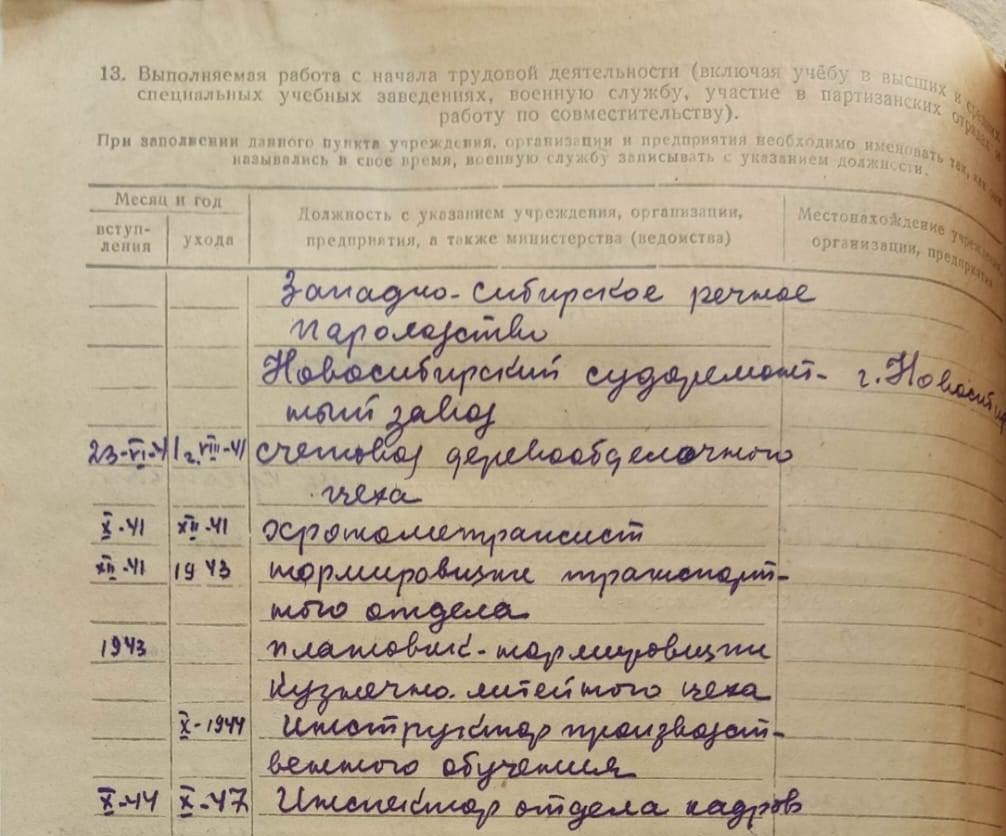 13. Выполняемая работа с начала трудовой деятельности (включая учёбу в высших и
специальных учебных заведениях, военную службу, участие в партизанских отрядах и
работу по совместительству).
При заполнении данного пункта учреждения, организации и предприятия необходимо именовать так, как они
назывались в свое время, военную службу записывать с указанием должности.
Месяц и год
вступ-
ления
ухода
Должность с указанием учреждения, организации,
предприятия, а также министерства (ведомства)
Местонахождение учреждения,
организации, предприятия
Западно-Сибирское речное
пароходство
Новосибирский судоремонт- г. Новосиб
ный завод
23-VI-41 1 г. VIII-41 счетовод деревообделочного
цеха
X-41 XII-41 хронометражист
XII-41 1943 нормировщик транспорт-
ного отдела
1943 плановик-нормировщик
кузнечно-литейного цеха
X-1944 Инструктор производст-
венного обучения
X-44 X-47 Инспектор отдела кадров